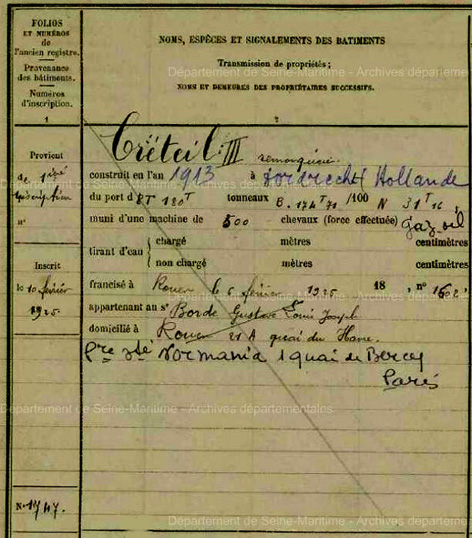 FOLIOS
ET NUMÉROS
de
l'ancien registre.
Provenance
des bâtiments.
Numéros
d'inscription.
1
NOMS, ESPÈCES ET SIGNALEMENTS DES BATIMENTS
Transmission de propriétés ;
Département de Seine-Maritime - Archives départeme
NOMS ET DEMEURES DES PROPRIÉTAIRES SUCCESSIFS.
2
Provient
de 1ère
inscription
n°
Inscrit
le 10 février
1925
N° 1747.
Créteil III remorqueur.
construit en l'an 1913 à Dordrecht Hollande
du port d 180 T tonneaux B. 174 T 71 /100 N 31 T 16
muni d'une machine de 500 chevaux (force effectuée) gaz-oil
tirant d'eau { chargé mètres centimètres
non chargé mètres centimètres
francisé à Rouen le 6 février 1925 18 , n° 1602
appartenant au sr Borde Gustave Louis Joseph
domicilié à Rouen 21 A quai du Havre.
Pre sté Normania 1 quai de Bercy
Paris
Département de Seine-Maritime - Archives départementales
Département de Seine-Maritime - Archives départeme